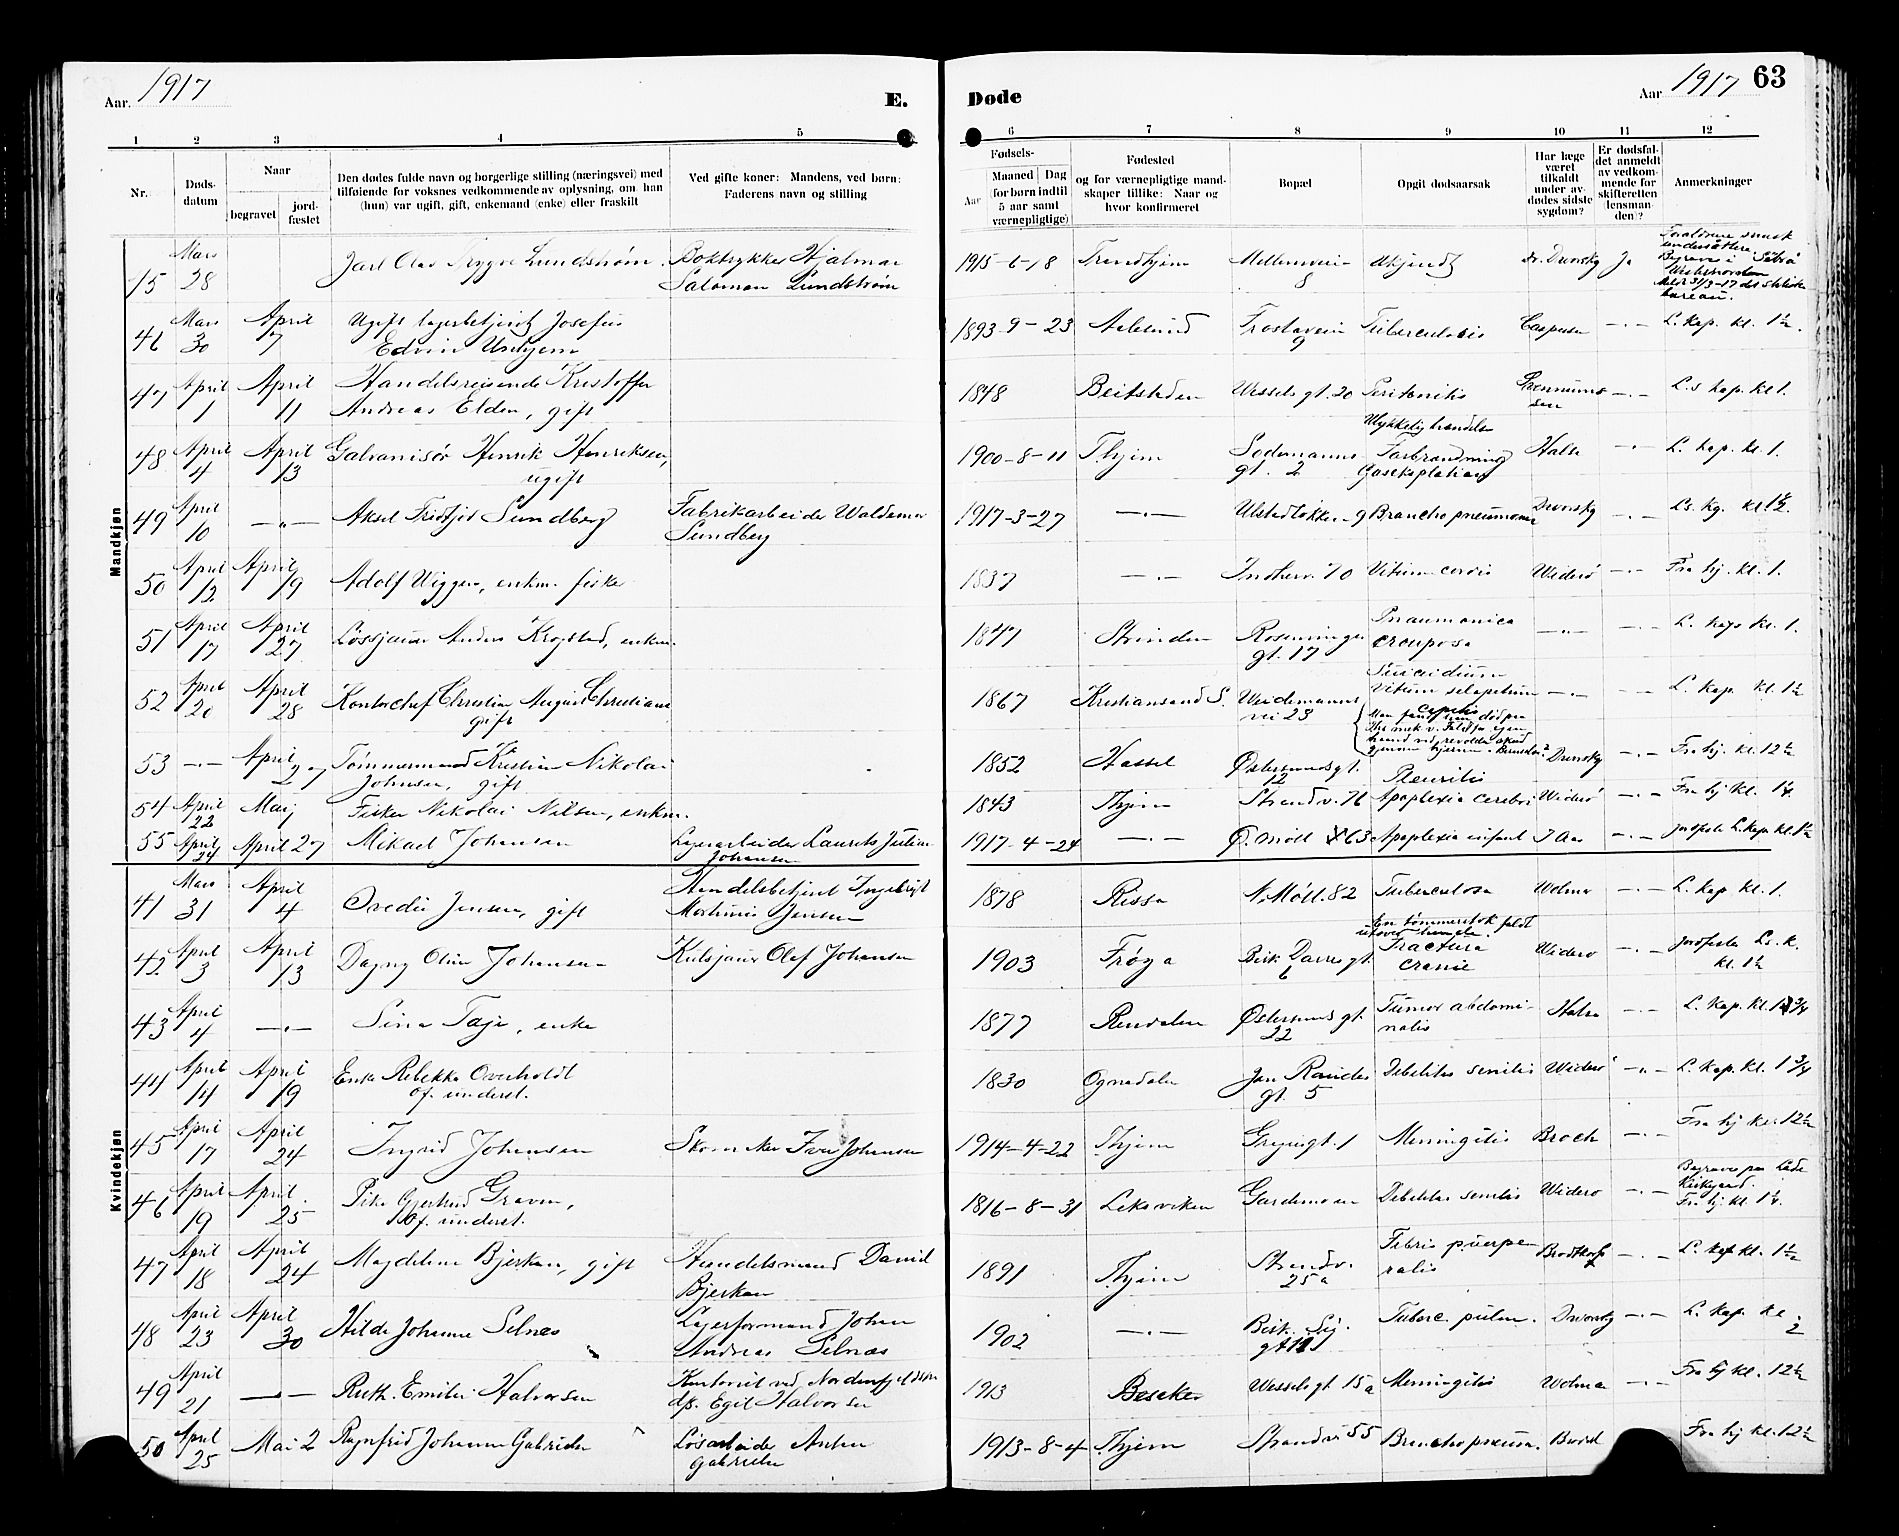 Aar. 1917
E.
Døde
Aar 1917
63
1 2 3 4 5 6 7 8 9 10 11 12
Nr.
Døds-
datum
Naar
begravet
jord-
fæstet
Den dødes fulde navn og borgerlige stilling (næringsvei) med
tilføiende for voksnes vedkommende av oplysning, om han
(hun) var ugift, gift, enkemand (enke) eller fraskilt
Ved gifte koner: Mandens, ved børn:
Faderens navn og stilling
Fødsels-
Aar
Maaned Dag
(for børn indtil
5 aar samt
værnepligtige)
Fødested
og for værnepligtige mand-
skaper tillike: Naar og
hvor konfirmeret
Bopæl
Opgit dødsaarsak
Har læge
været
tilkaldt
under av-
dødes sidste
sygdom?
Er dødsfal-
det anmeldt
av vedkom-
mende for
skifteretten
(lensman-
den)?
Anmerkninger
Mandkjøn
45 Mars 28 Jarl Olav Trygve Lundstrøm. Boktrykker Hjalmar
Salomon Lundstrøm 1915-6-18 Trondhjem Mellemveien 8 Ukjendt dr. Dworsky Ja
46 Mars 30 April 7 Ugift lagerbetjent Josefus
Edvin 1893-9-23 Aalesund Frostaveien 9 Tuberculosis L. kap. kl. 1½.
47 April 1 April 11 Handelsreisende Kristoffer
Andreas Elden, gift 1848 Beitstaden Wessels gt. 20 Peritonitis —„— L.s kap. kl. 1.
48 April 4 April 13 Galvanisør Henrik Henriksen,
ugift 1900-8-11 Thjem gt. 2 Ulykkelig hændelse
Forbrænding Halse —„— L. kap. kl. 1.
49 April 10 —„— Aksel Fridtjof Sundberg Fabrikarbeider Waldemar
Sundberg 1917-3-27 —„— Ulstadløkken 9 Bronchopneumoni Dworsky —„— Ls. kg. kl. 1½.
50 April 12 April 19 Adolf Wiggen, enkm. fisker 1837 —„— Vitium cordis Widerö —„— Fra hj. kl. 1.
51 April 17 April 27 Løssjauer Anders Krogstad, enkm. 1847 Strinden gt. 17 Pnaumonica
crouposa —„— —„— L. kap. kl. 1.
52 April 20 April 28 Kontorchef Christian August Christiansen
gift 1867 Kristiansand S. Weidemanns
vei 23 Suicidium
capitis —„— —„— L. kap. kl. 1½
53 —„— April 27 Tømmermand Kristian Nikolai
Johnsen, gift 1852 Hassel Østersundsgt.
12 Pleuritis Dworsky —„— Fra hj. kl. 12½
54 April 22 Maj Fisker Nikolai Nilsen, enkm. 1843 Thjem Strandv. 76 Apoplexia cerebri Widerö —„— Fra hj kl.
55 April 24 April 27 Mikael Johansen Lagerarbeider Laurits Justin
Johansen 1917-4-24 —„— Ø. Møll 63 Apoplexia infant J Aas —„— Jordfeste L. kap. kl. 1½
Kvindekjøn
41 Mars 31 April 4 Ovedie Jensen, gift Handelsbetjent Ingebrigt
Martinus Jensen 1878 Rissa N. Møll. 82 Tuberculosa Wolmer —„— L. kap. kl. 1.
42 April 3 April 13 Dagny Oline Johansen Kulsjauer Olaf Johansen 1903 Frøya Bisk Darres gt.
6 En tømmerstok faldt
utover hende.
Fractura
cranie Widerö —„— Jordfeste Ls. k.
kl. 1½
43 April 4 —„— Sina Taje, enke 1877 Rendalen Østersunds gt.
22 Tumor abdomi-
nalis Halse —„— L. kap. kl. 1¾
44 April 14 April 19 Enke Rebekka Overholdt
of. underst. 1830 Ognadalen Jon Raudes
gt. 5 Debilitas senilis Widerö —„— L. kap. kl. 1¾
45 April 17 April 24 Ingrid Johansen Skomaker Iver Johansen 1914-4-22 Thjem gt. 1 Meningitis Broch —„— Fra hj kl. 12½
46 April 19 April 25 Pike Gjertrud Graven,
of. underst. 1816-8-31 Leksviken Gardemoen Debilitas senilis Widerö —„— Begraves paa Lade
Kirkegaard.
Fra hj. kl.
47 April 18 April 24 Magdalene Bjerkan, gift Handelsmand Daniel
Bjerkan 1891 Thjem Strandv.
25a Febris puerpe-
ralis Brodtkorb —„— L. kap kl. 1½
48 April 23 April 30 Hilda Johanne Selnæs Lagerformand Johan
Andreas Selnæs 1902 —„— Bisk. Sig.
gt 11 Tuberc. pulm. Dworsky —„— L. kap. kl. 2
49 April 21 —„— Ruth Emilie Halvorsen Kontorist ved Nordenfjeldske
d/s. Egil Halvorsen 1913 Wessels gt 15a Meningitis —„— Fra hj kl. 12½
50 April 25 Mai 2 Ragnfrid Johanne Gabrielsen Løsarbeider Anton
Gabrielsen 1913-8-4 Thjem Strandvei 55 Bronchopneum. Fra hj kl. 12½